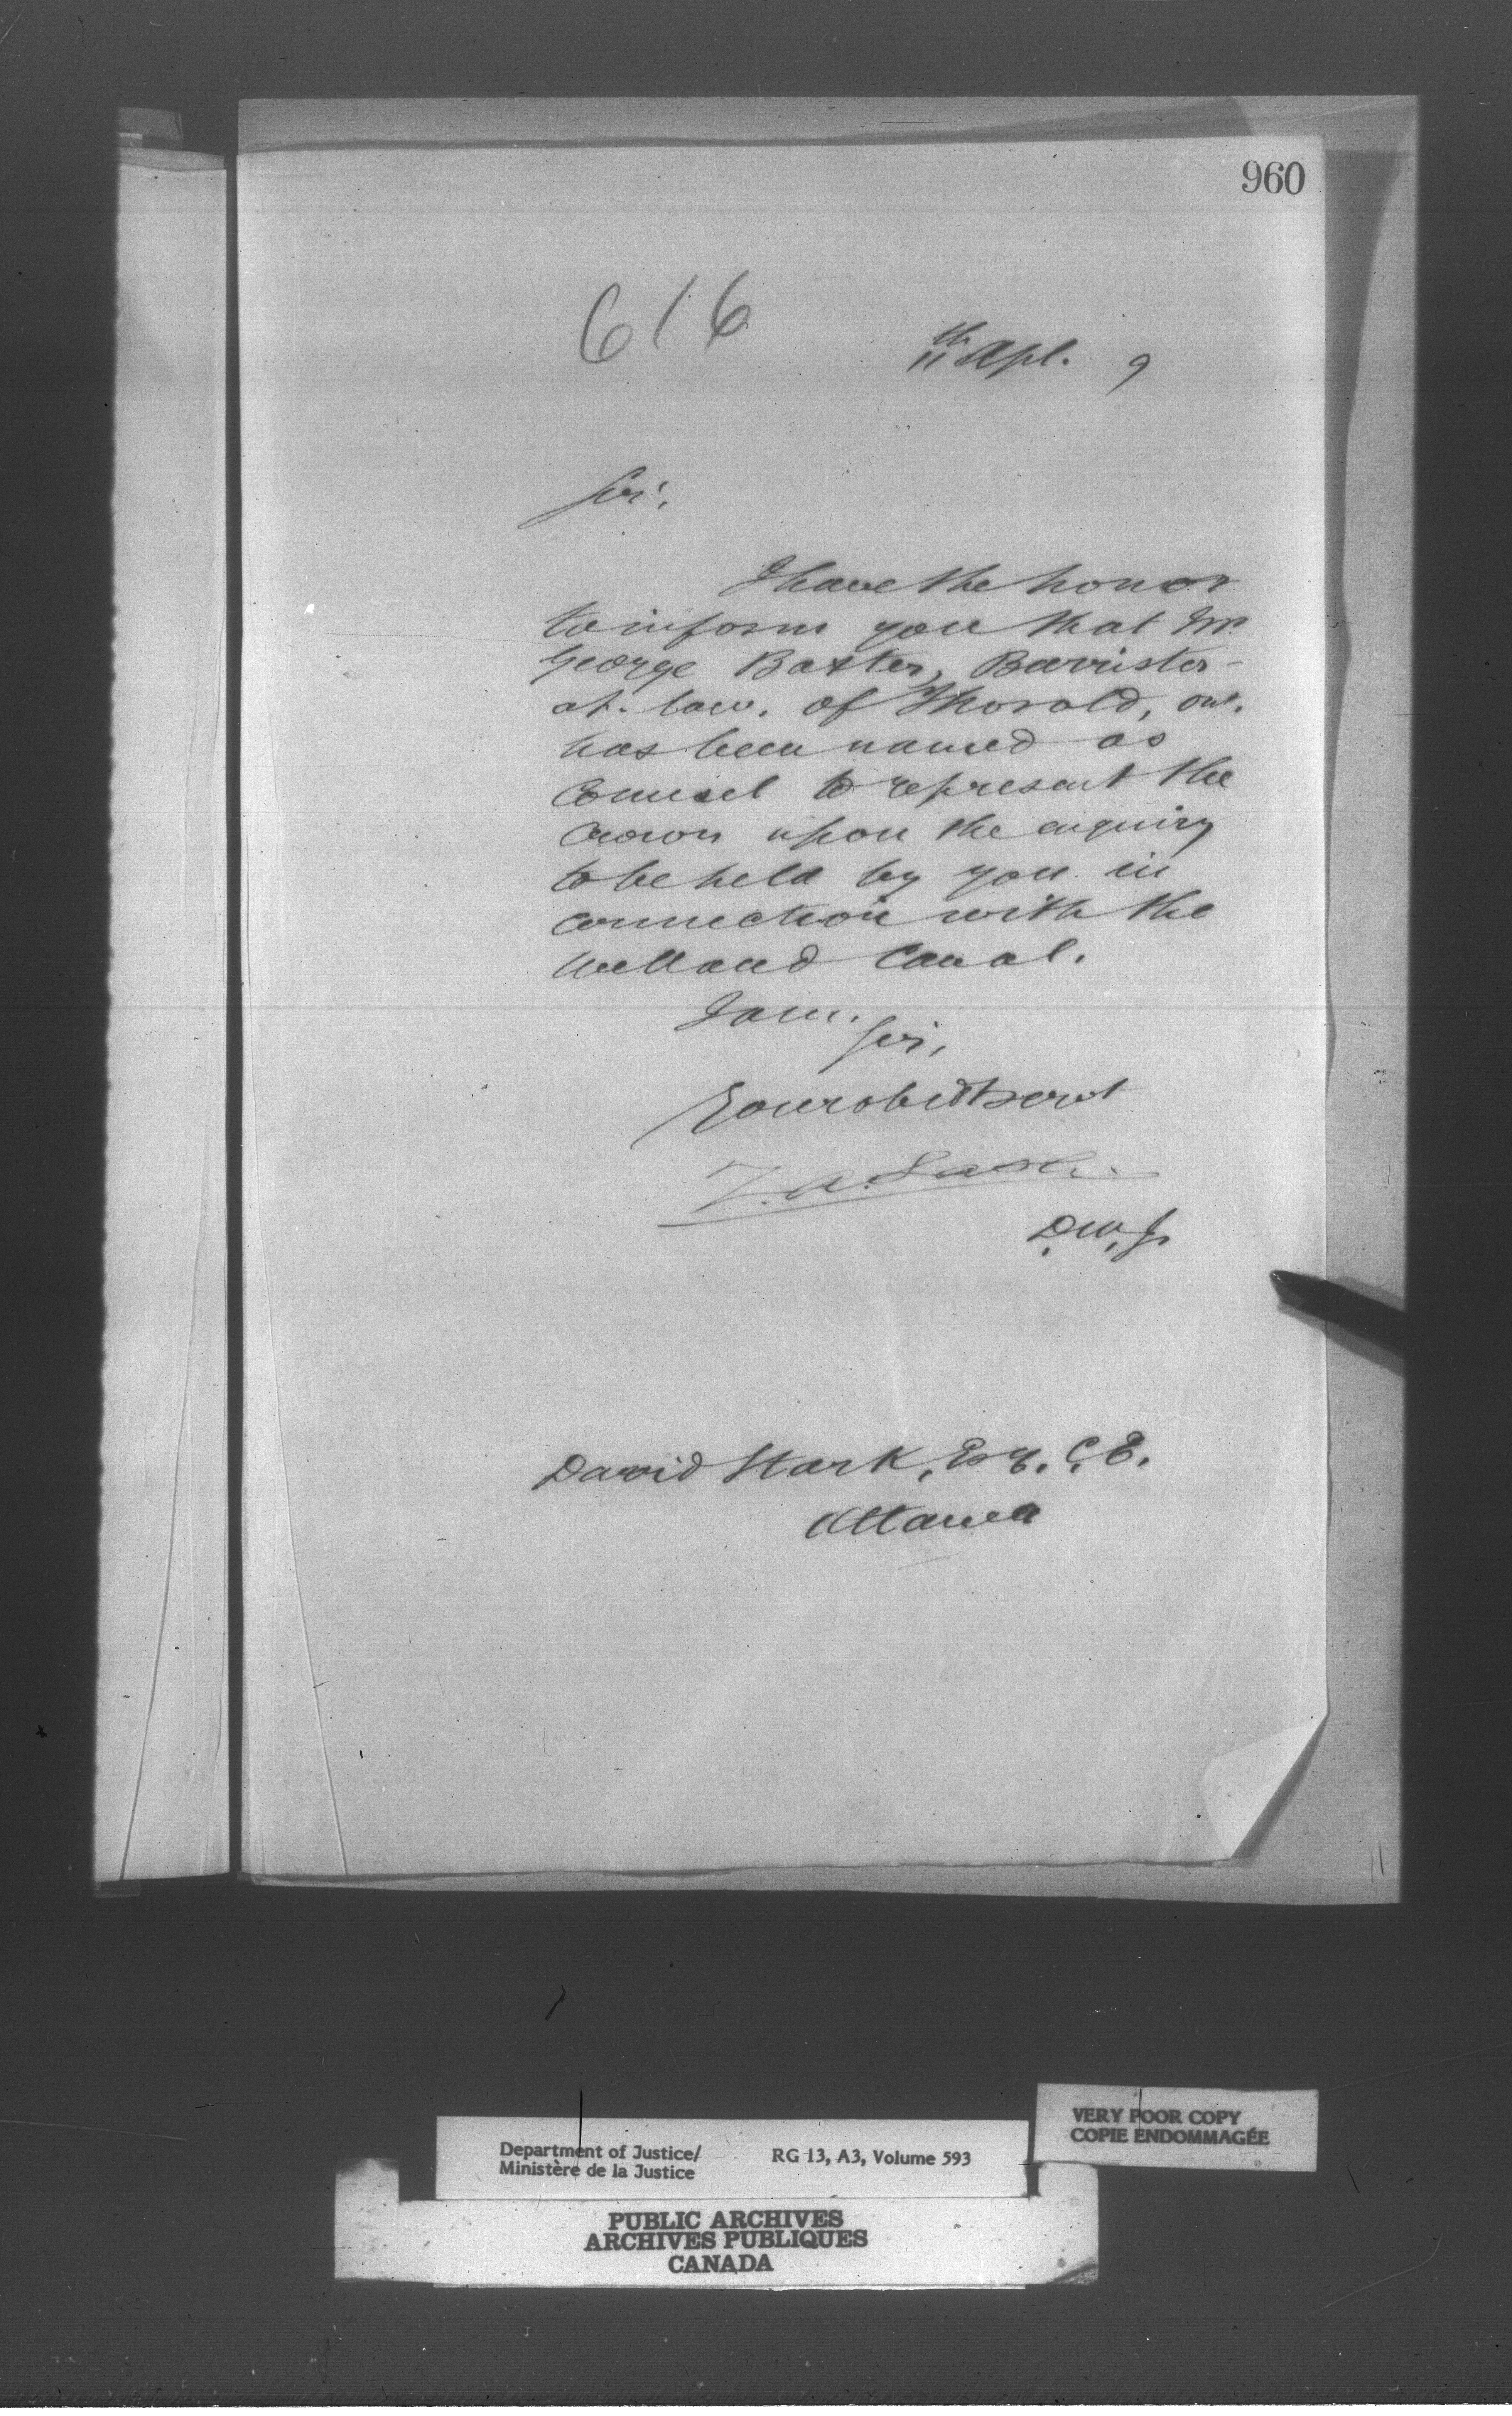 960
616
11th Apl. 9
Sir,
I have the honor
to inform you that Mr.
George Baxter, Barrister-
at-law, of Thorold, Ont.
has been named as
Counsel to represent the
Crown upon the enquiry
to be held by you in
connection with the
Welland Canal.
I am,
Sir,
Your obedt servt
Z. A. Lash.
D.M.J.
David Stark, Esq. C.E.
Ottawa
VERY POOR COPY
COPIE ENDOMMAGÉE
Department of Justice/ RG 13, A3, Volume 593
Ministère de la Justice
PUBLIC ARCHIVES
ARCHIVES PUBLIQUES
CANADA